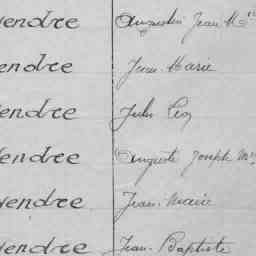 endre Augustin Jean M
endre Jean Marie
endre Jules Léon
endre Auguste Joseph M
endre Jean-Marie
endre Jean-Baptiste